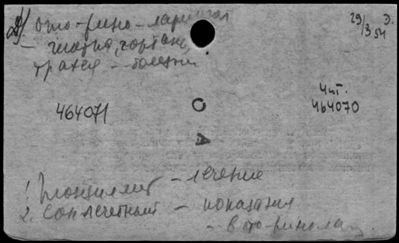 ото-рино-ларингол
глотка, гортань,
трахея - болезни
29/3 54 Э.
464071
Чит.
464070
О
А
1. Тонзиллит - лечение
2. Сон лечебный - показания
- в ото-ринолар